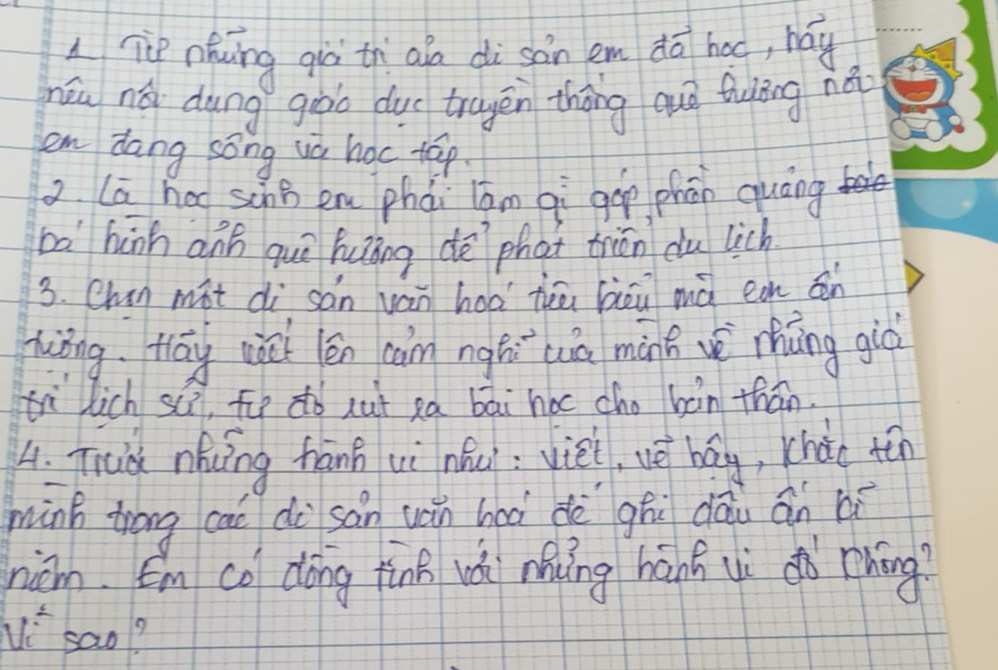 1 Từ những giá trị của di sản em đã học, hãy
nêu nội dung giáo dục truyền thống quê hương nơi
em đang sống và học tập.
2. Là học sinh em phải làm gì góp phần quảng
bá hình ảnh quê hương để phát triển du lịch.
3. Chọn một di sản văn hoá tiêu biểu mà em ấn
tượng. Hãy viết lên cảm nghĩ của mình về những giá
trị lịch sử, từ đó rút ra bài học cho bản thân.
4. Trước những hành vi như: viết, vẽ bậy, khắc tên
mình trong các di sản văn hoá để ghi dấu ấn kỉ
niệm. Em có đồng tình với những hành vi đó không?
Vì sao?